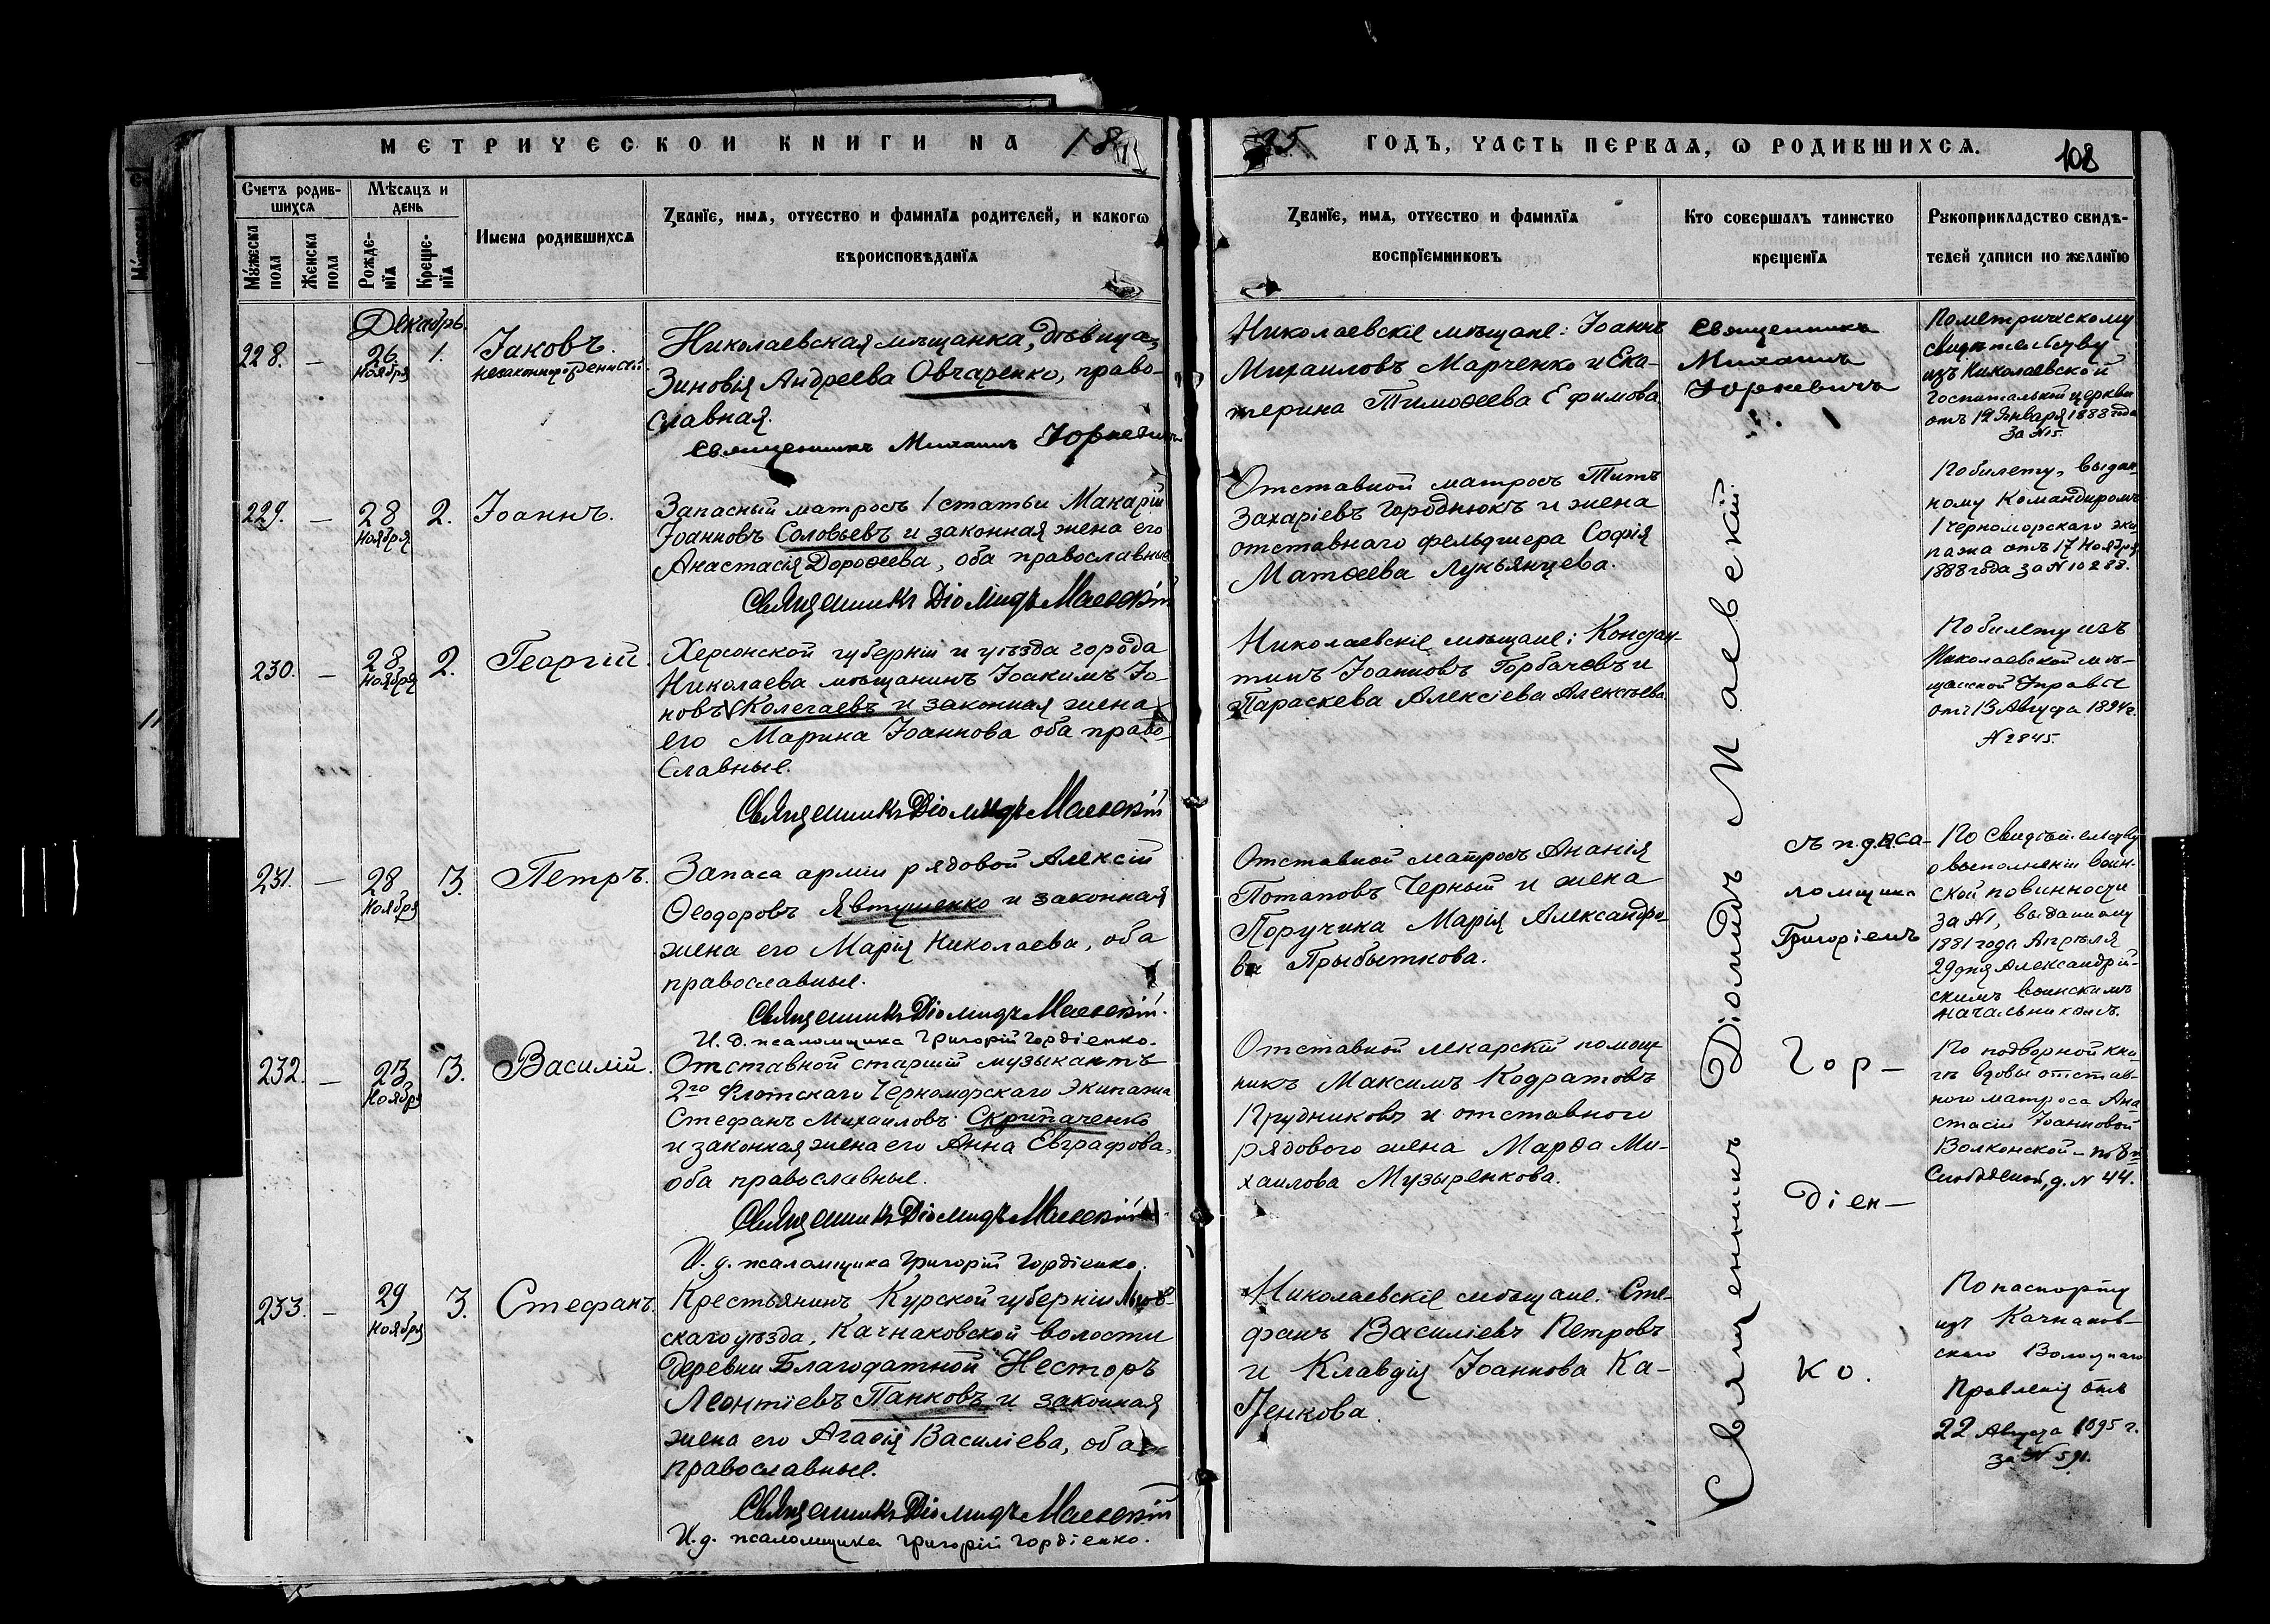 МЕТРИЧЕСКОЙ КНИГИ НА 18
95 ГОДЪ, ЧАСТЬ ПЕРВАЯ, Ѡ РОДИВШИХСЯ.
108
Счетъ родив-
шихся
Мѣсяцъ и
день
Мужеска пола
Женска пола
Рожде-
нїя
Креще-
нїя
Имена родившихся
Званїе, имя, отчество и фамилїя родителей, и какогѡ
вѣроисповѣданїя
Званїе, имя, отчество и фамилїя
воспрїемниковъ
Кто совершалъ таинство
крещенїя
Рукоприкладство свидѣ-
телей записи по желанїю
Декабрь
228. — 26. Ноября 1.
Іаковъ.
незаконнорожденный
Николаевская мѣщанка, дѣвица,
Зиновія Андреева Овчаренко, право-
славная.
Священникъ Михаилъ Юркевичъ
Николаевскіе мѣщане: Іоаннъ
Михаиловъ Марченко и Ека-
терина Тимоѳеева Ефимова
Священникъ
Михаилъ
Юркевичъ
По метрическому
свидетельству
изъ Николаевской
Госпитальной церкви
отъ 19 Января 1888 года
За №15.
229. — 28 Ноября 2.
Іоаннъ.
Запасный матросъ 1 статьи Макарій
Іоанновъ Соловьевъ и законная жена его
Анастасія Дороѳеева, оба православные
Священникъ Діомидъ Маевскій
Отставной матросъ Титъ
Захаріевъ Городнюкъ и жена
отставнаго фельдшера Софія
Матѳеева Лукьянцева.
По билету, выдан-
ному Командиромъ
1 Черноморскаго эки
пажа отъ 17 Ноября
1888 года за №10288.
230. — 28 Ноября 2.
Георгій.
Херсонской губерніи и уѣзда города
Николаева мѣщанинъ Іоакимъ Іо-
новъ Колегаевъ и законная жена
его Марина Іоаннова оба право-
славные.
Священникъ Діомидъ Маевскій
Николаевскіе мѣщане: Констан-
тинъ Іоанновъ Горбачевъ и
Параскева Алексіева Алексѣева
По билету изъ
Николаевской мѣ-
щанской Управы
отъ 13 Августа 1894 г.
№ 2845.
231. — 28 Ноября 3.
Петръ.
Запаса арміи рядовой Алексій
Ѳеодоровъ Явтушенко и законная
жена его Марія Николаева, оба
православные.
Священникъ Діомидъ Маевскій.
И. д. псаломщика Григорій Гордіенко.
Отставной матросъ Ананія
Потаповъ Черный и жена
Поручика Марія Александро-
ва Прыбыткова.
Священникъ Діомидъ Маевскій
съ и.д. пса-
ломщика
Григоріемъ
Гор-
діен-
ко.
По свидѣтельству
о выполненіи воин-
ской повинности
за №1, выданному
1881 года Апрѣля
29 дня Александрій-
скимъ воинскимъ
начальникомъ.
232. — 23 Ноября 3.
Василій.
Отставной старшій музыкантъ
2го Флотскаго Черноморскаго Экипажа
Стефанъ Михаиловъ Скрипаченко
и законная жена его Анна Евграфова,
оба православные.
Священникъ Діомидъ Маевскій
И. д. псаломщика Григорій Гордіенко.
Отставной лекарскій помощ-
никъ Максимъ Кодратовъ
Прудниковъ и отставного
рядового жена Марѳа Ми-
хаилова Музыренкова.
По подворной кни-
гѣ вдовы отстав-
ного матроса Ана-
стасіи Іоанновой
Волконской – по 8й
Слободской, д. № 44.
233. — 29 Ноября 3.
Стефанъ.
Крестьянинъ Курской губерніи Льгов-
скаго уѣзда, Качнаковской волости
деревни Благодатной Несторъ
Леонтіевъ Панковъ и законная
жена его Агаѳія Василіева, оба
православные.
Священникъ Діомидъ Маевскій
И. д. псаломщика Григорій Гордіенко.
Николаевскіе мѣщане: Сте-
фанъ Василіевъ Петровъ
и Клавдія Іоаннова Ка-
Ценкова.
По паспорту
изъ Качнаков-
скаго Волостнаго
Правленія отъ
22 Августа 1895 г.
за № 591.